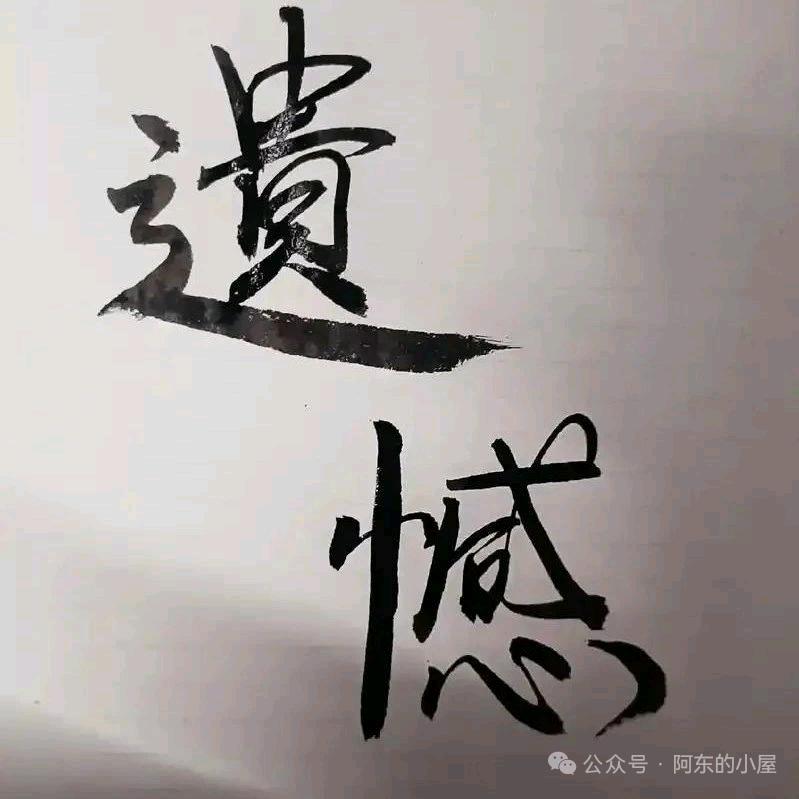 遺
憾
公众号 · 阿东的小屋